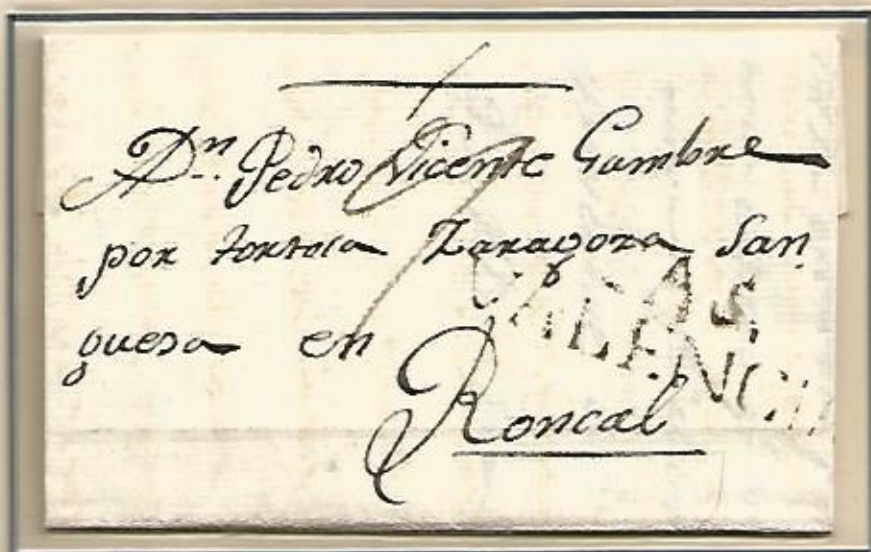 A Dn. Pedro Vicente Gambre
por tortosa Zaragoza San
guesa en
Roncal
VALENCIA